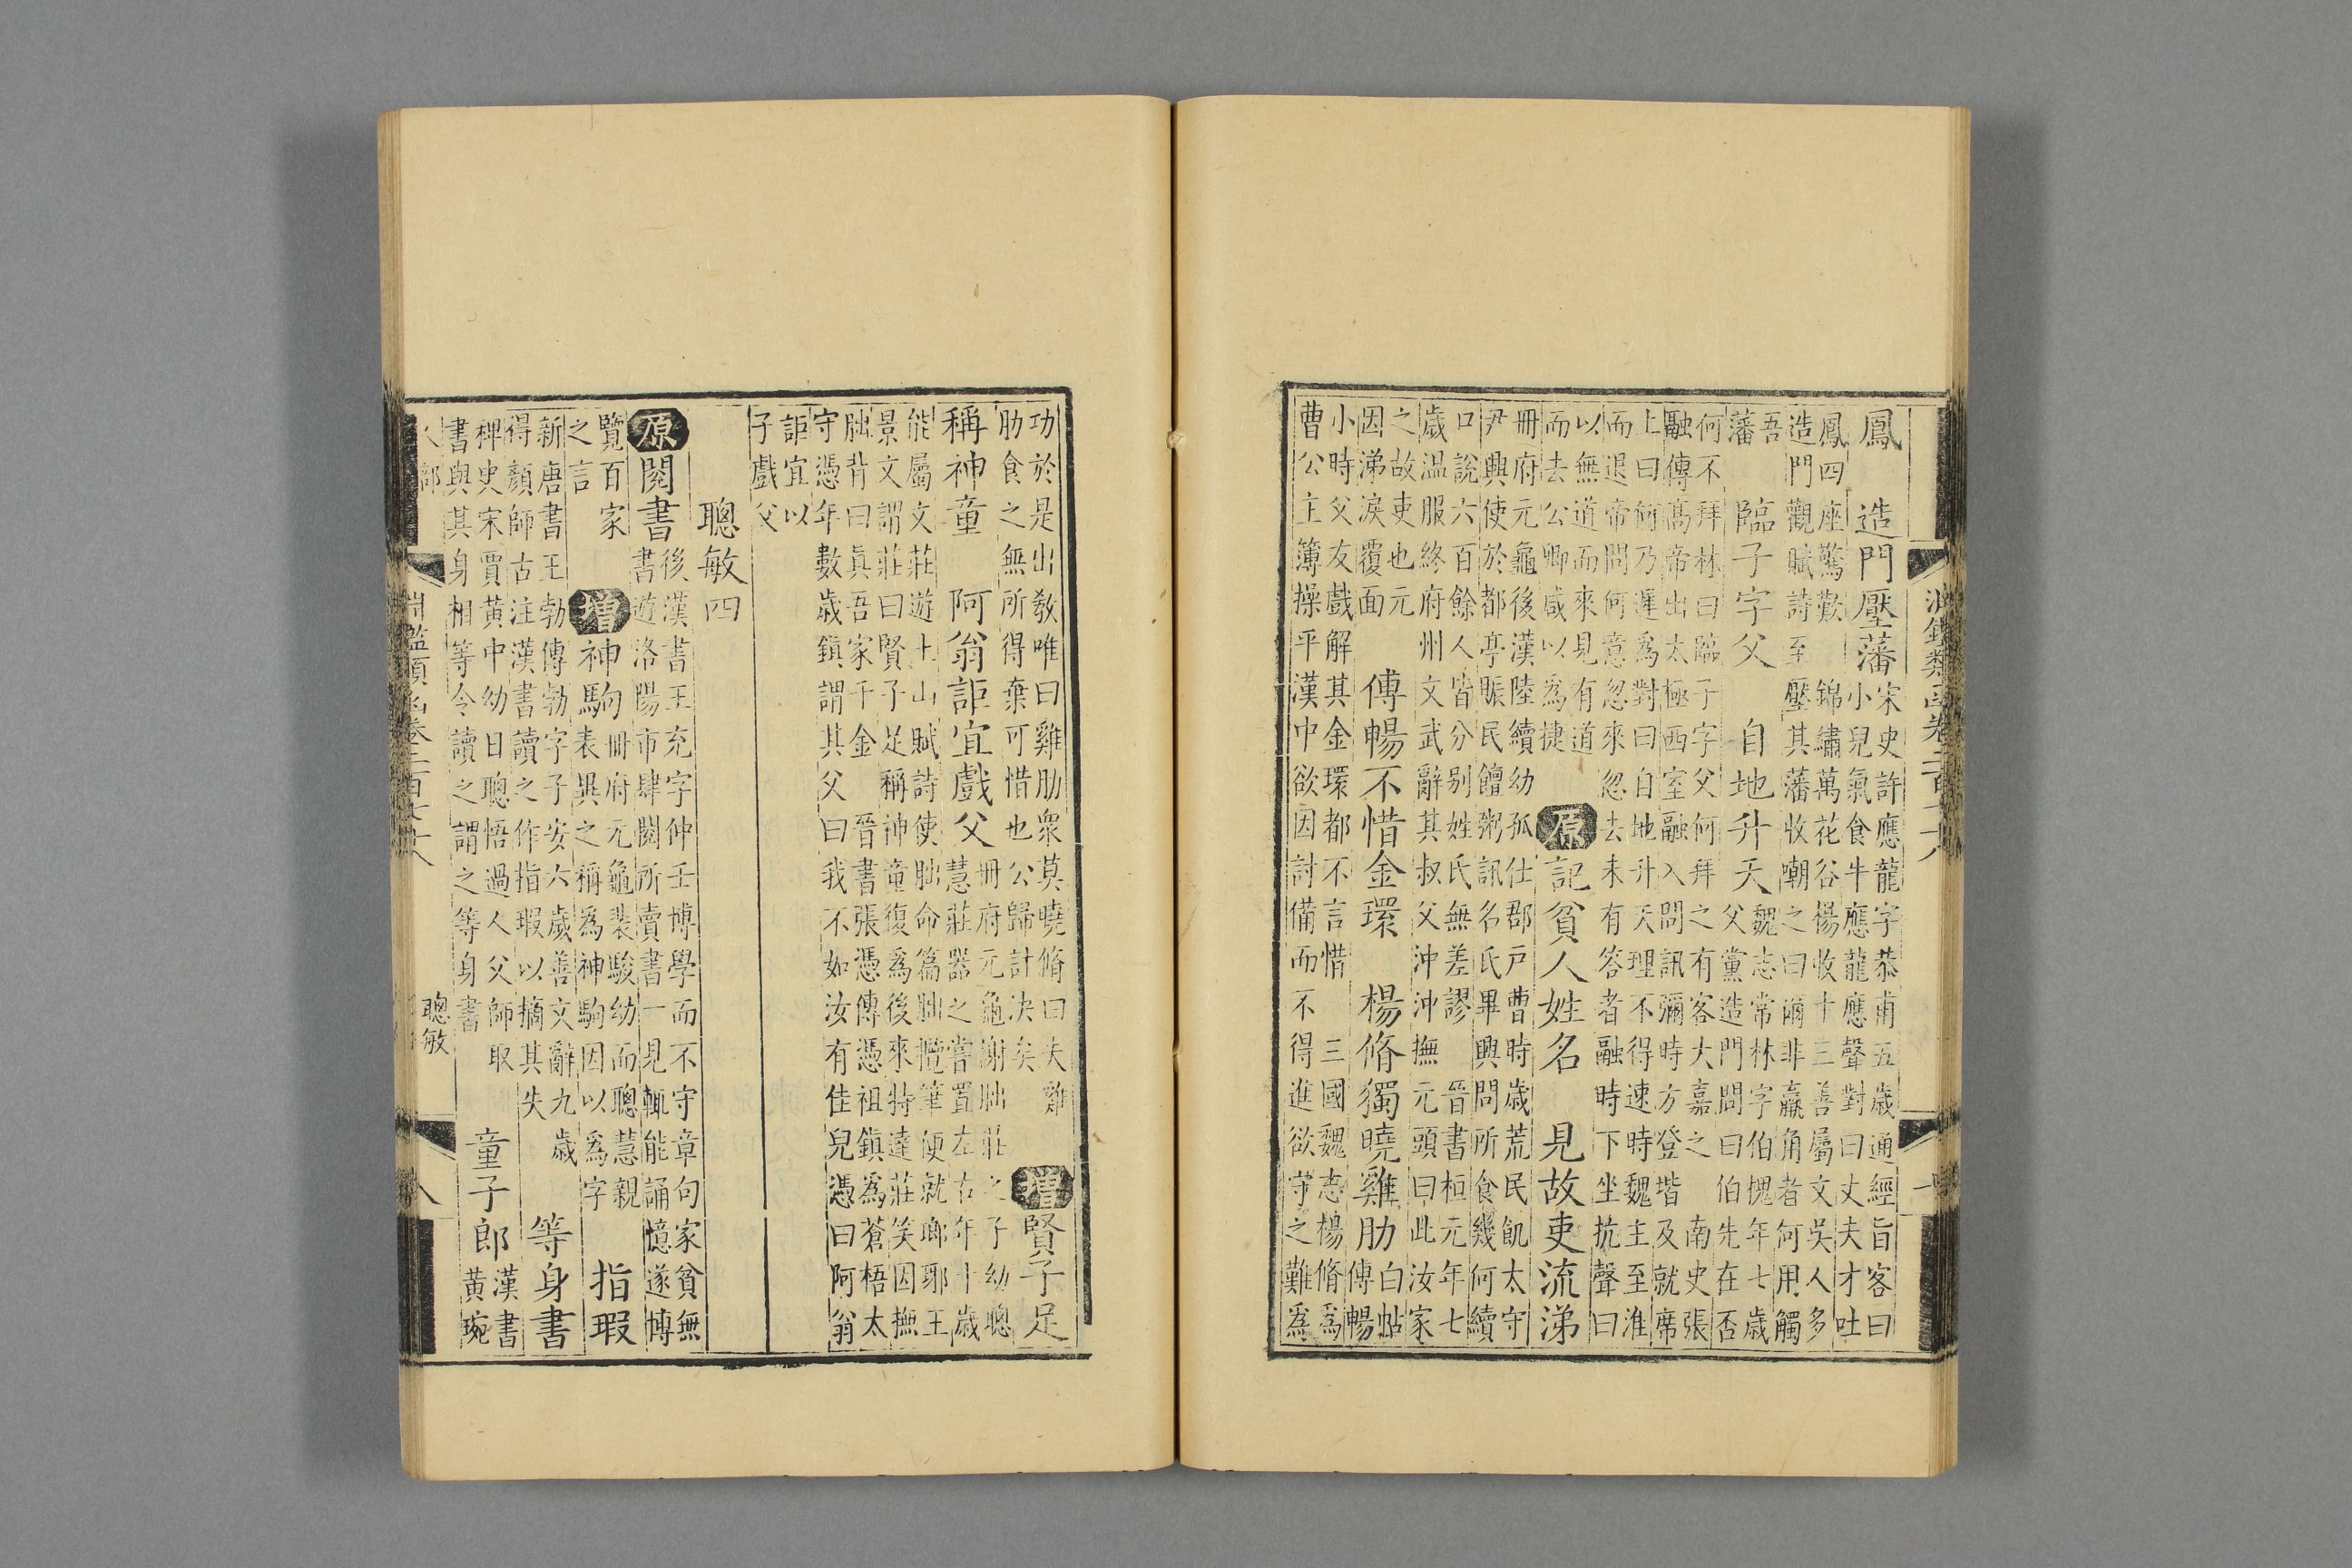 鳳　造門壓藩　宋史許應龍字恭甫五歲通經旨客曰
小兒氣食牛應龍應聲對曰丈夫才吐
鳳四座驚歎　錦繡萬花谷楊收十三善屬文吳人多
造門觀賦詩至壓其藩收嘲之曰爾非羸角者何用觸
吾
藩　臨子字父　自地升天　魏志常林字伯槐年七歲
父黨造門問曰伯先在否
何不拜林曰臨子字父何拜之有客大嘉之　南史張
融傳高帝出太極西室融入問訊彌時方登堦及就席
上曰何乃遲為對曰自地升天理不得速時魏主至淮
而退帝問何意忽來忽去未有答者融時下坐抗聲曰
以無道而來見有道
而去公卿咸以為捷　原　記貧人姓名　見故吏流涕
冊府元龜後漢陸續幼孤仕郡戶曹時歲荒民飢太守
尹興使於都亭賑民饘粥訊名氏畢興問所食幾何續
口說六百餘人皆分别姓氏無差謬　晉書桓元年七
歲温服終府州文武辭其叔父沖沖撫元頭曰此汝家
之故吏也元
因涕淚覆面　傅暢不惜金環　楊脩獨曉雞肋　白帖
傅暢
小時父友戲解其金環都不言惜　三國魏志楊脩為
曹公主簿操平漢中欲因討備而不得進欲守之難為
功於是出教唯曰雞肋衆莫曉脩曰夫雞
肋食之無所得棄可惜也公歸計决矣　增　賢子足
稱神童　阿翁詎宜戲父　冊府元龜謝朏莊之子幼聰
慧莊器之嘗置左右年十歲
能屬文莊遊土山賦詩使朏命篇朏攬筆便就瑯耶王
景文謂莊曰賢子足稱神童復為後來特達莊笑因撫
朏背曰真吾家千金　晉書張憑傳憑祖鎮為蒼梧太
守憑年數歲鎮謂其父曰我不如汝有佳兒憑曰阿翁
詎宜以
子戲父
聰敏四
原　閱書　後漢書王充字仲壬博學而不守章句家貧無
書遊洛陽市肆閱所賣書一見輒能誦憶遂博
覽百家
之言　增　神駒　冊府元龜裴駿幼而聰慧親
表異之稱為神駒因以為字　指瑕
新唐書王勃傳勃字子安六歲善文辭九歲
得顏師古注漢書讀之作指瑕以摘其失　等身書
稗史宋賈黃中幼日聰悟過人父師取
書與其身相等令讀之謂之等身書　童子郎　漢書
黃琬
聰敏